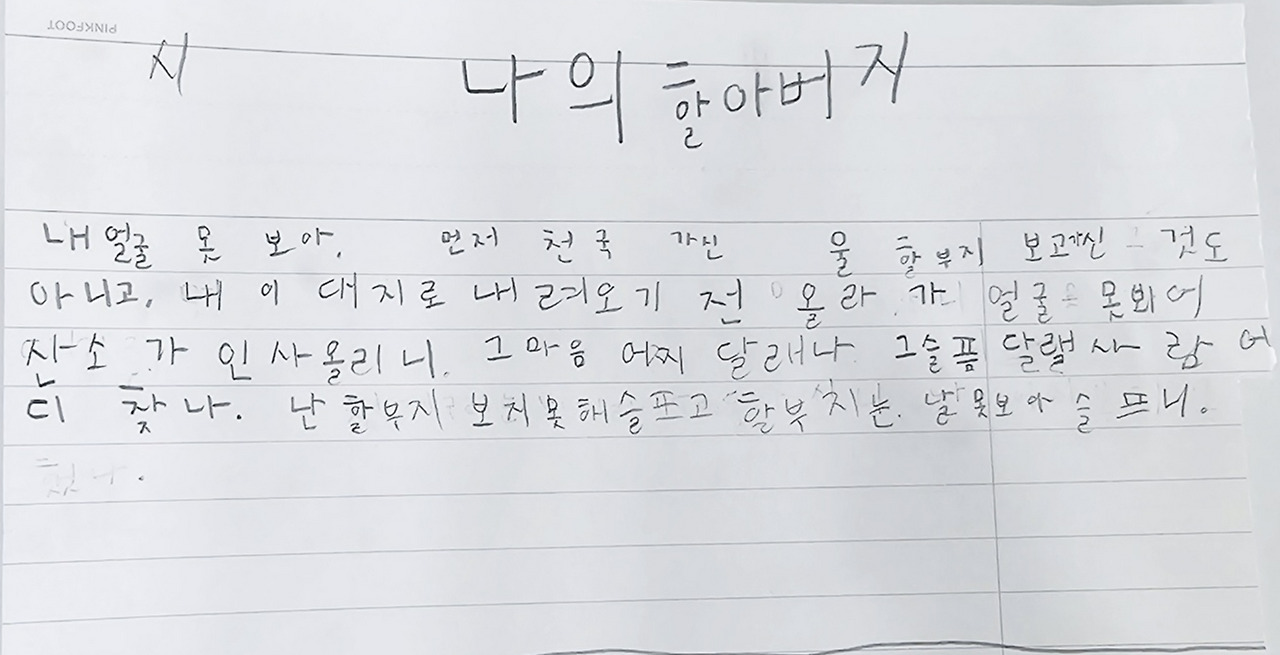 PINKFOOT
시 나의 할아버지
내 얼굴 못 보아, 먼저 천국 가신 울 할부지 보고가신 것도
아니고, 내 이 대지로 내려오기 전 올라 가 얼굴 못뵈어
산소 가 인사올리니. 그마음 어찌 달래나 그슬픔 달랠사람 어
디 찾나. 난 할부지 보지못해슬프고 할부지는. 날 못보아 슬프니.